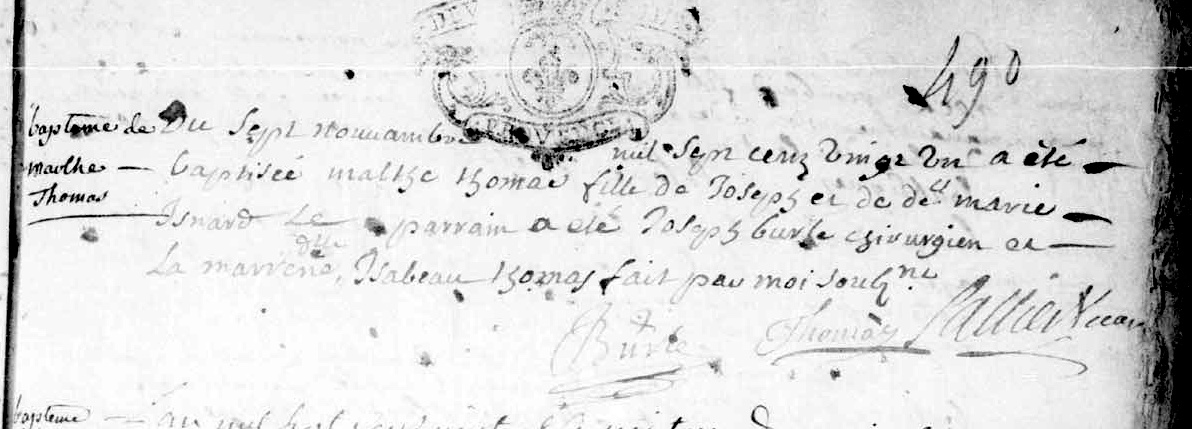 PROVENCE
490
baptême de
marthe
Thomas
Du sept nouvambre mil sept cenz vingt un a été
baptisée malthe thomas fille de Joseph et de dll marie
Isnard Le parrain a été Joseph burle chirurgien et
La marrene dlle Isabeau thomas fait par moi soubne
Burle Thomas Vicaire
baptême